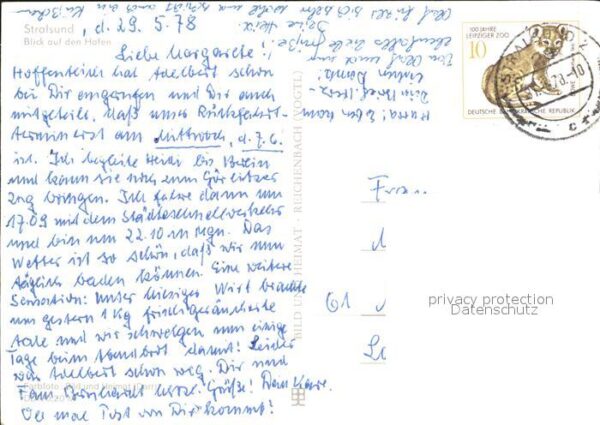 Stralsund
Blick auf den Hafen
, d. 29. 5. 78
Liebe Margarete!
Hoffentlich hat Adelbert schon
bei Dir eingerufen und Dir auch
mitgeteilt, daß unser Rückfahrt-
termin erst am Mittwoch, d. 7.6.
ist. Ich begleite Heidi bis Berlin
und kann sie noch zum Görlitzer
Zug bringen. Ich fahre dann um
17.09 mit dem Städteschnellverkehr
und bin um 22.10 in Mgn. Das
Wetter ist so schön, daß wir nun
täglich baden können. Eine weitere
Sensation: Unser hiesiger Wirt brachte
uns gestern 1 kg frischgeräucherte
Aale und wir schwelgen nun einige
Tage beim Abendbrot damit! Leider
war Adelbert schon weg. Dir und
Fam. herzl. Grüße! Dein
Ob mal Post von Dir kommt?
Hurra! Eben kam
Dein Brief. Herz-
lichen Dank!
Von und
ebenfalls viele Grüße!
Deine
BILD UND HEIMAT · REICHENBACH (VOGTL)
100 JAHRE
LEIPZIGER ZOO
10
DEUTSCHE DEMOKRATISCHE REPUBLIK
STRALSUND
61
privacy protection
Datenschutz
Farbfoto: Bild und Heimat